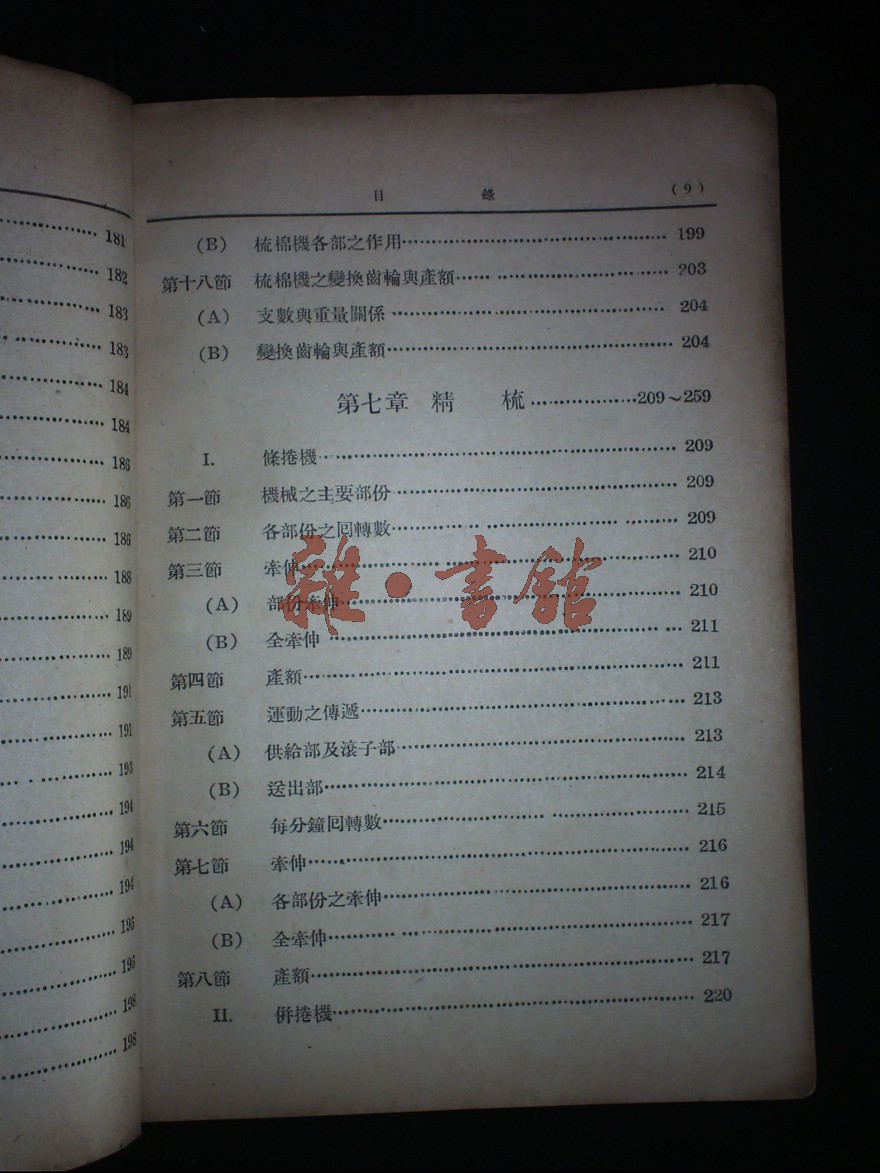 181
182
183
183
184
184
186
186
186
188
189
189
191
191
193
194
194
194
195
196
198
198
目 錄 (9)
(B) 梳棉機各部之作用 199
第十八節 梳棉機之變換齒輪與產額 203
(A) 支數與重量關係 204
(B) 變換齒輪與產額 204
第七章 精 梳 209～259
I. 條捲機 209
第一節 機械之主要部份 209
第二節 各部份之囘轉數 209
第三節 牽伸 210
(A) 部份牽伸 210
(B) 全牽伸 211
第四節 產額 211
第五節 運動之傳遞 213
(A) 供給部及滾子部 213
(B) 送出部 214
第六節 每分鐘囘轉數 215
第七節 牽伸 216
(A) 各部份之牽伸 216
(B) 全牽伸 217
第八節 產額 217
II. 併捲機 220
雜·書館